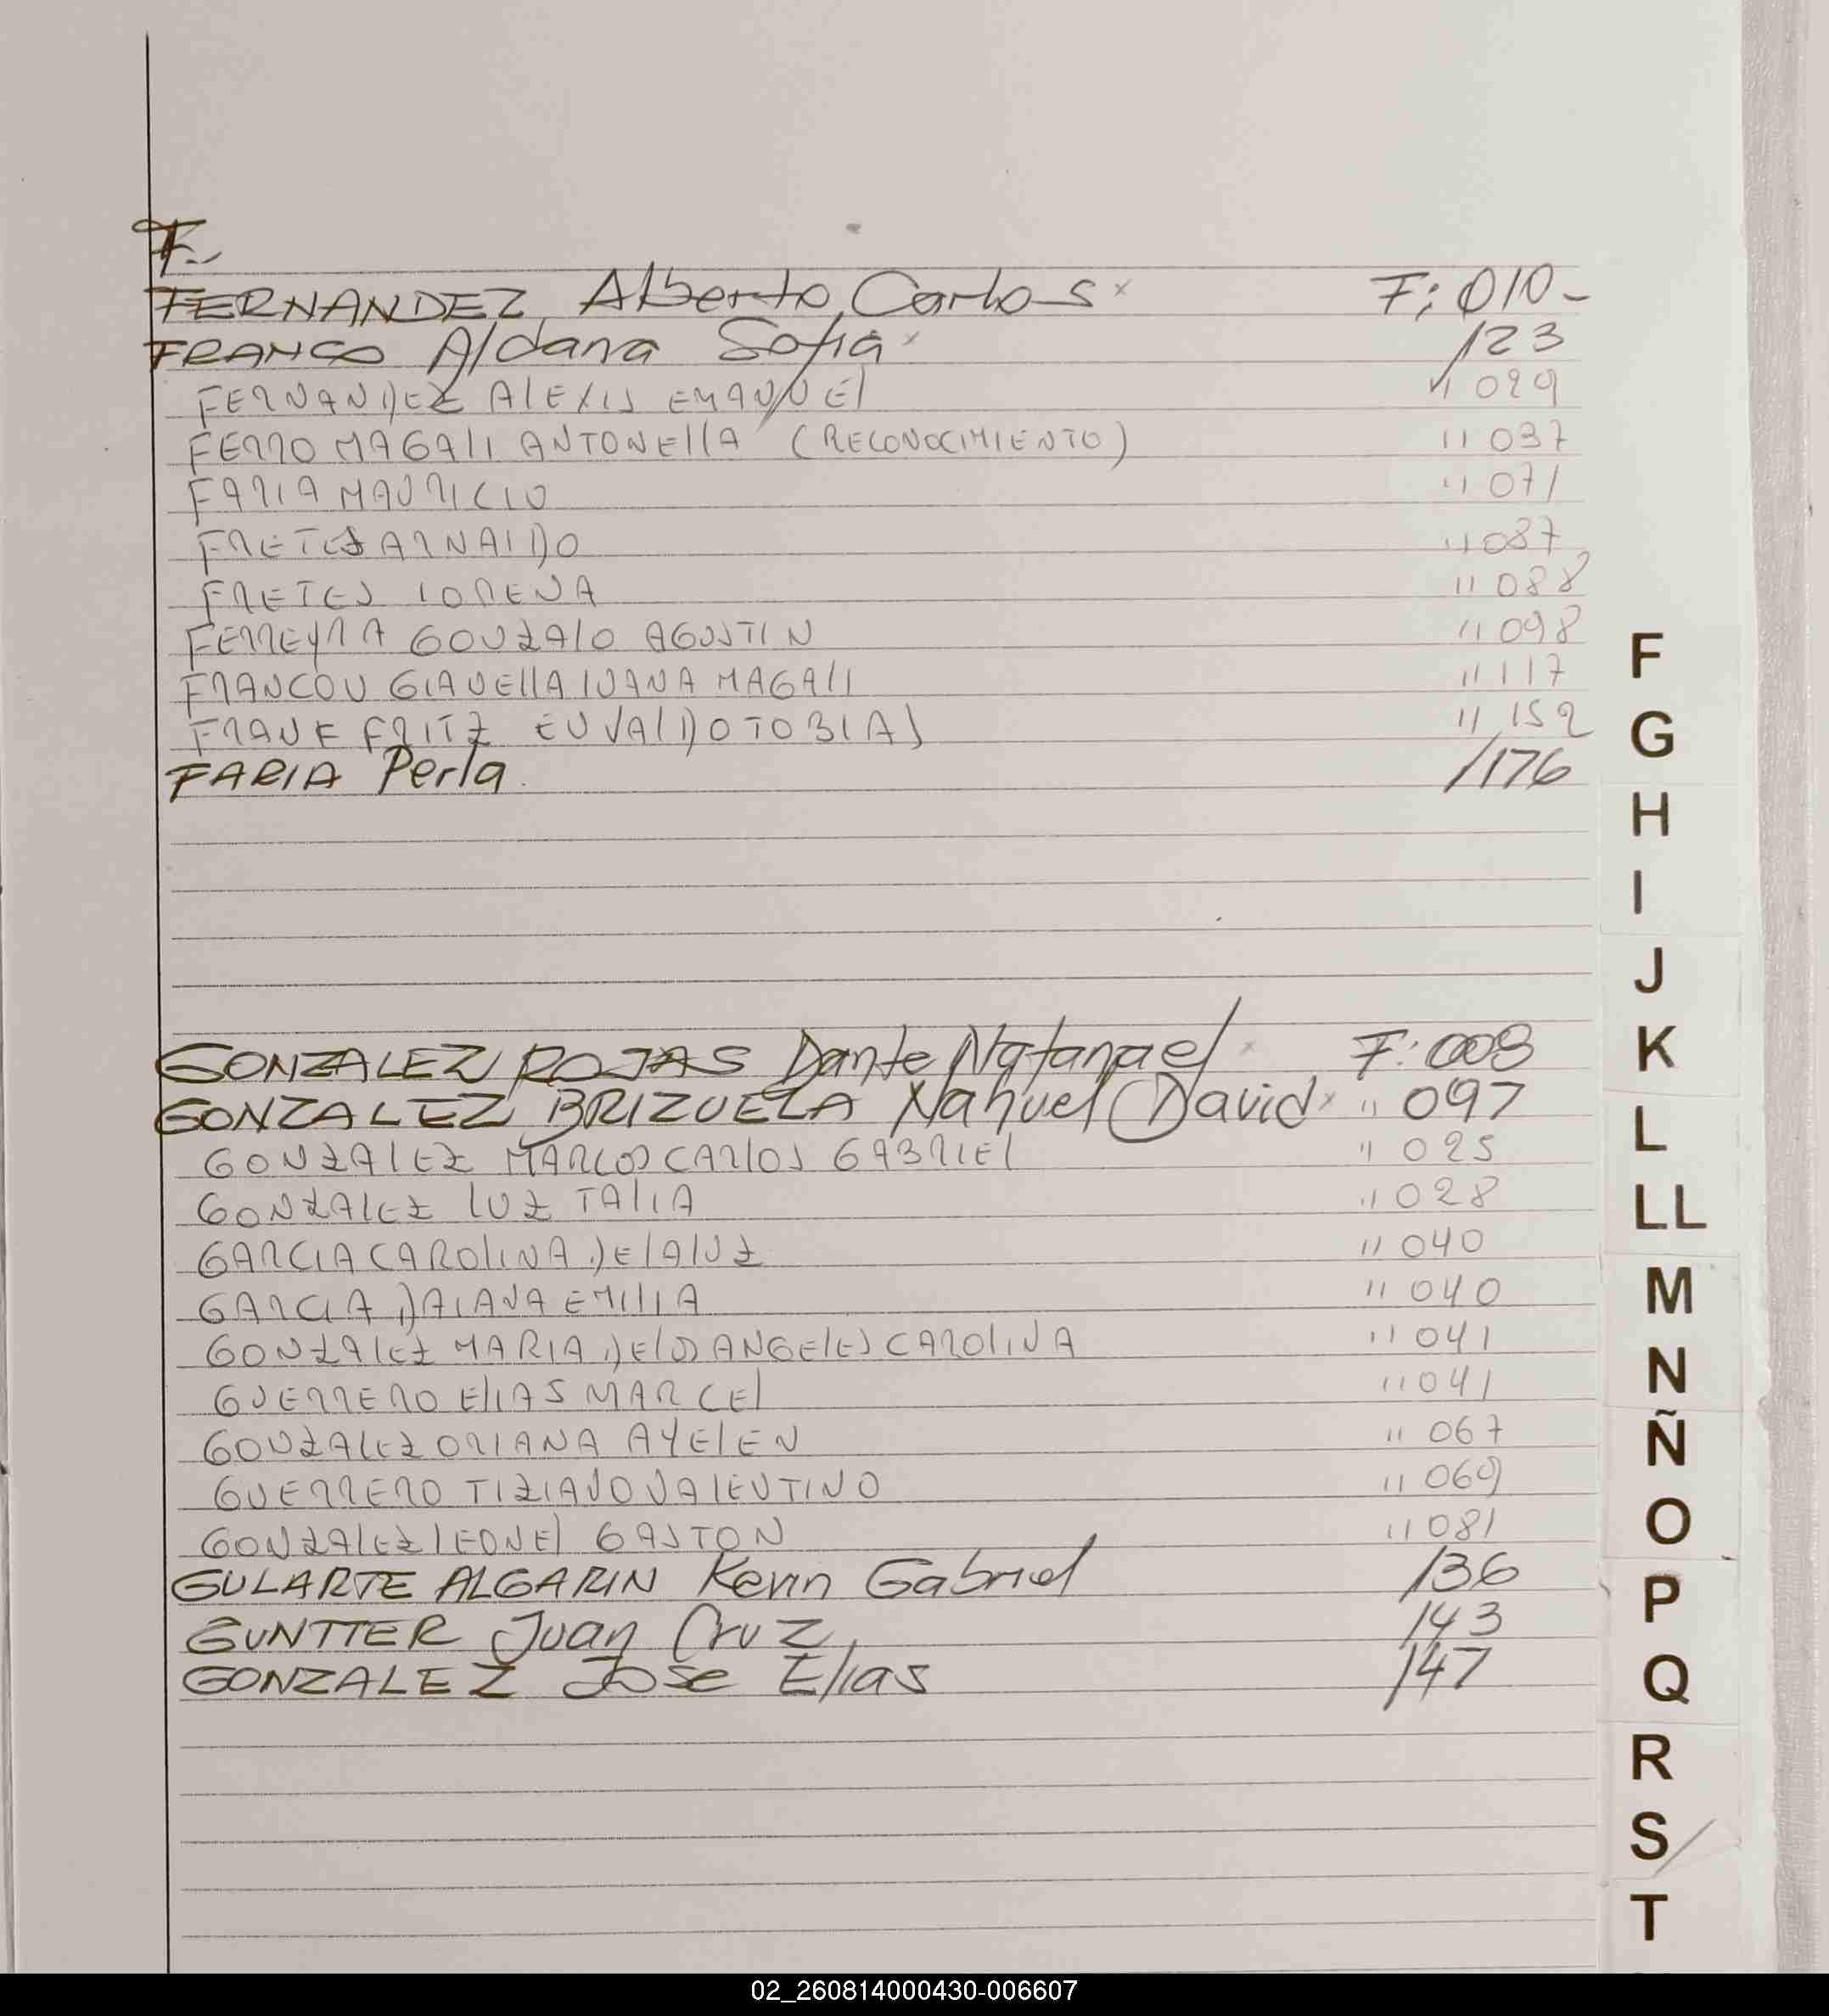 F.
FERNANDEZ, Alberto Carlos x F: 010-
FRANCO Aldana Sofia x /123
FERNANDEZ ALEXIS EMANUEL " 029
FERRO MAGALI ANTONELLA (RECONOCIMIENTO) " 037
FARIA MAURICIO " 071
FRETES ARNALDO " 087
FRETES LORENA " 088
FERREYRA GONZALO AGUSTIN " 098
FRANCOU GIANELLA IVANA MAGALI " 117
FRANK FRITZ EUVALDO TOBIAS " 152
FARIA Perla /176
GONZALEZ ROJAS Dante Natanael x F: 008
GONZALEZ BRIZUELA Nahuel David x " 097
GONZALEZ MARCOS CARLOS GABRIEL " 025
GONZALEZ LUZ TALIA " 028
GARCIA CAROLINA DE LA LUZ " 040
GARCIA DAIANA EMILIA " 040
GONZALEZ MARIA DE LOS ANGELES CAROLINA " 041
GUERRERO ELIAS MARCEL " 041
GONZALEZ ORIANA AYELEN " 067
GUERRERO TIZIANO VALENTINO " 069
GONZALEZ LEONEL GASTON " 081
GULARTE ALGARIN Kevin Gabriel /136
GUNTTER Juan Cruz /143
GONZALEZ Jose Elias /147
F
G
H
I
J
K
L
LL
M
N
Ñ
O
P
Q
R
S
T
02_260814000430-006607